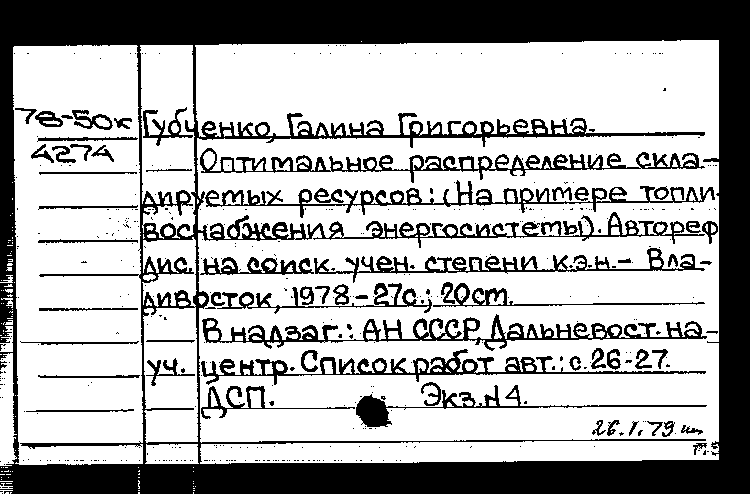 78-50к Губченко, Галина Григорьевна.
4274 Оптимальное распределение скла-
дируемых ресурсов: (На примере топли-
воснабжения энергосистемы). Автореф
дис. на соиск. учен. степени к.э.н.- Вла-
дивосток, 1978.-27с.; 20см.
В надзаг.: АН СССР, Дальневост. на-
уч. центр. Список работ авт.: с.26-27.
ДСП. Экз.N4.
26.I.79